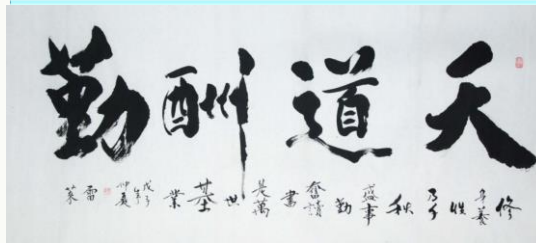 天道酬勤
修身養性乃千秋盛事勤奮讀書是萬世基業
戊子年仲夏
雷